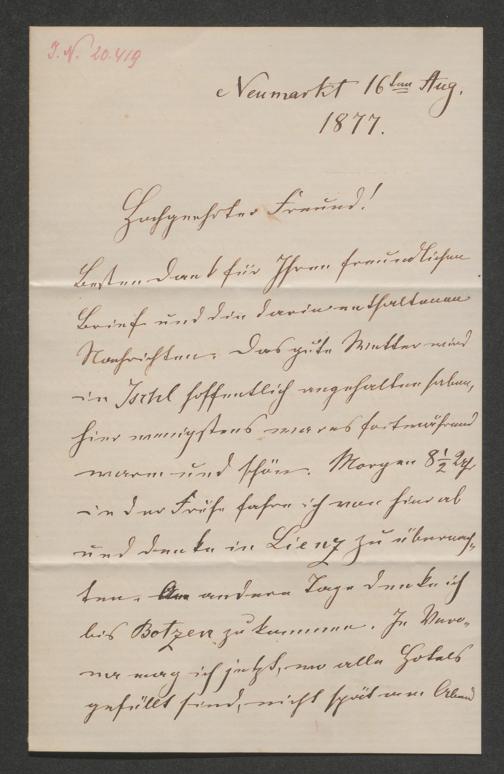 J. N. 20.419
Neumarkt 16ten Aug.
1877.
Hochgeehrter Freund!
Besten Dank für Ihren freundlichen
Brief und die darin enthaltenen
Nachrichten. Das gute Wetter wird
in Ischl hoffentlich angehalten haben,
hier wenigstens war es fortwährend
warm und schön. Morgen 8½ Uhr
in der Frühe fahre ich von hier ab
und denke in Lienz zu übernach-
ten. andern Tags denke ich
bis Botzen zu kommen. In Vero-
na mag ich jetzt, wo alle Hotels
gefüllt sind, nicht spät am Abend